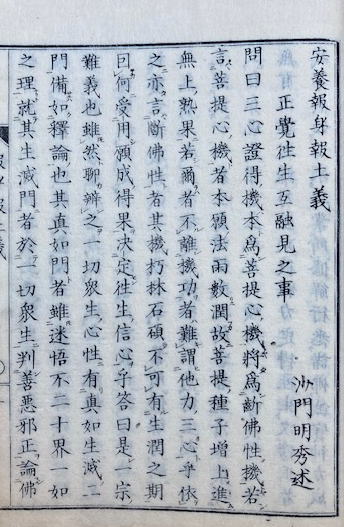 安養報身報土義
沙門明秀述
正覺徃生互融見之事
問曰三心證得機本爲菩提心機將爲斷佛性機若
言菩提心機者本願法雨數潤故菩提種子增上進
無上熟果若爾者不離機功者難謂他力三心乎依
之亦言斷佛性者其機朽林石碩不可有生潤之期
曰何受用願成得果决定徃生信心乎答曰是一宗
難義也雖然聊辨之一切衆生心性有真如生滅二
門備如釋論也其真如門者雖迷悟不二十界一如
之理就其生滅門者於一切衆生判善悪邪正論佛